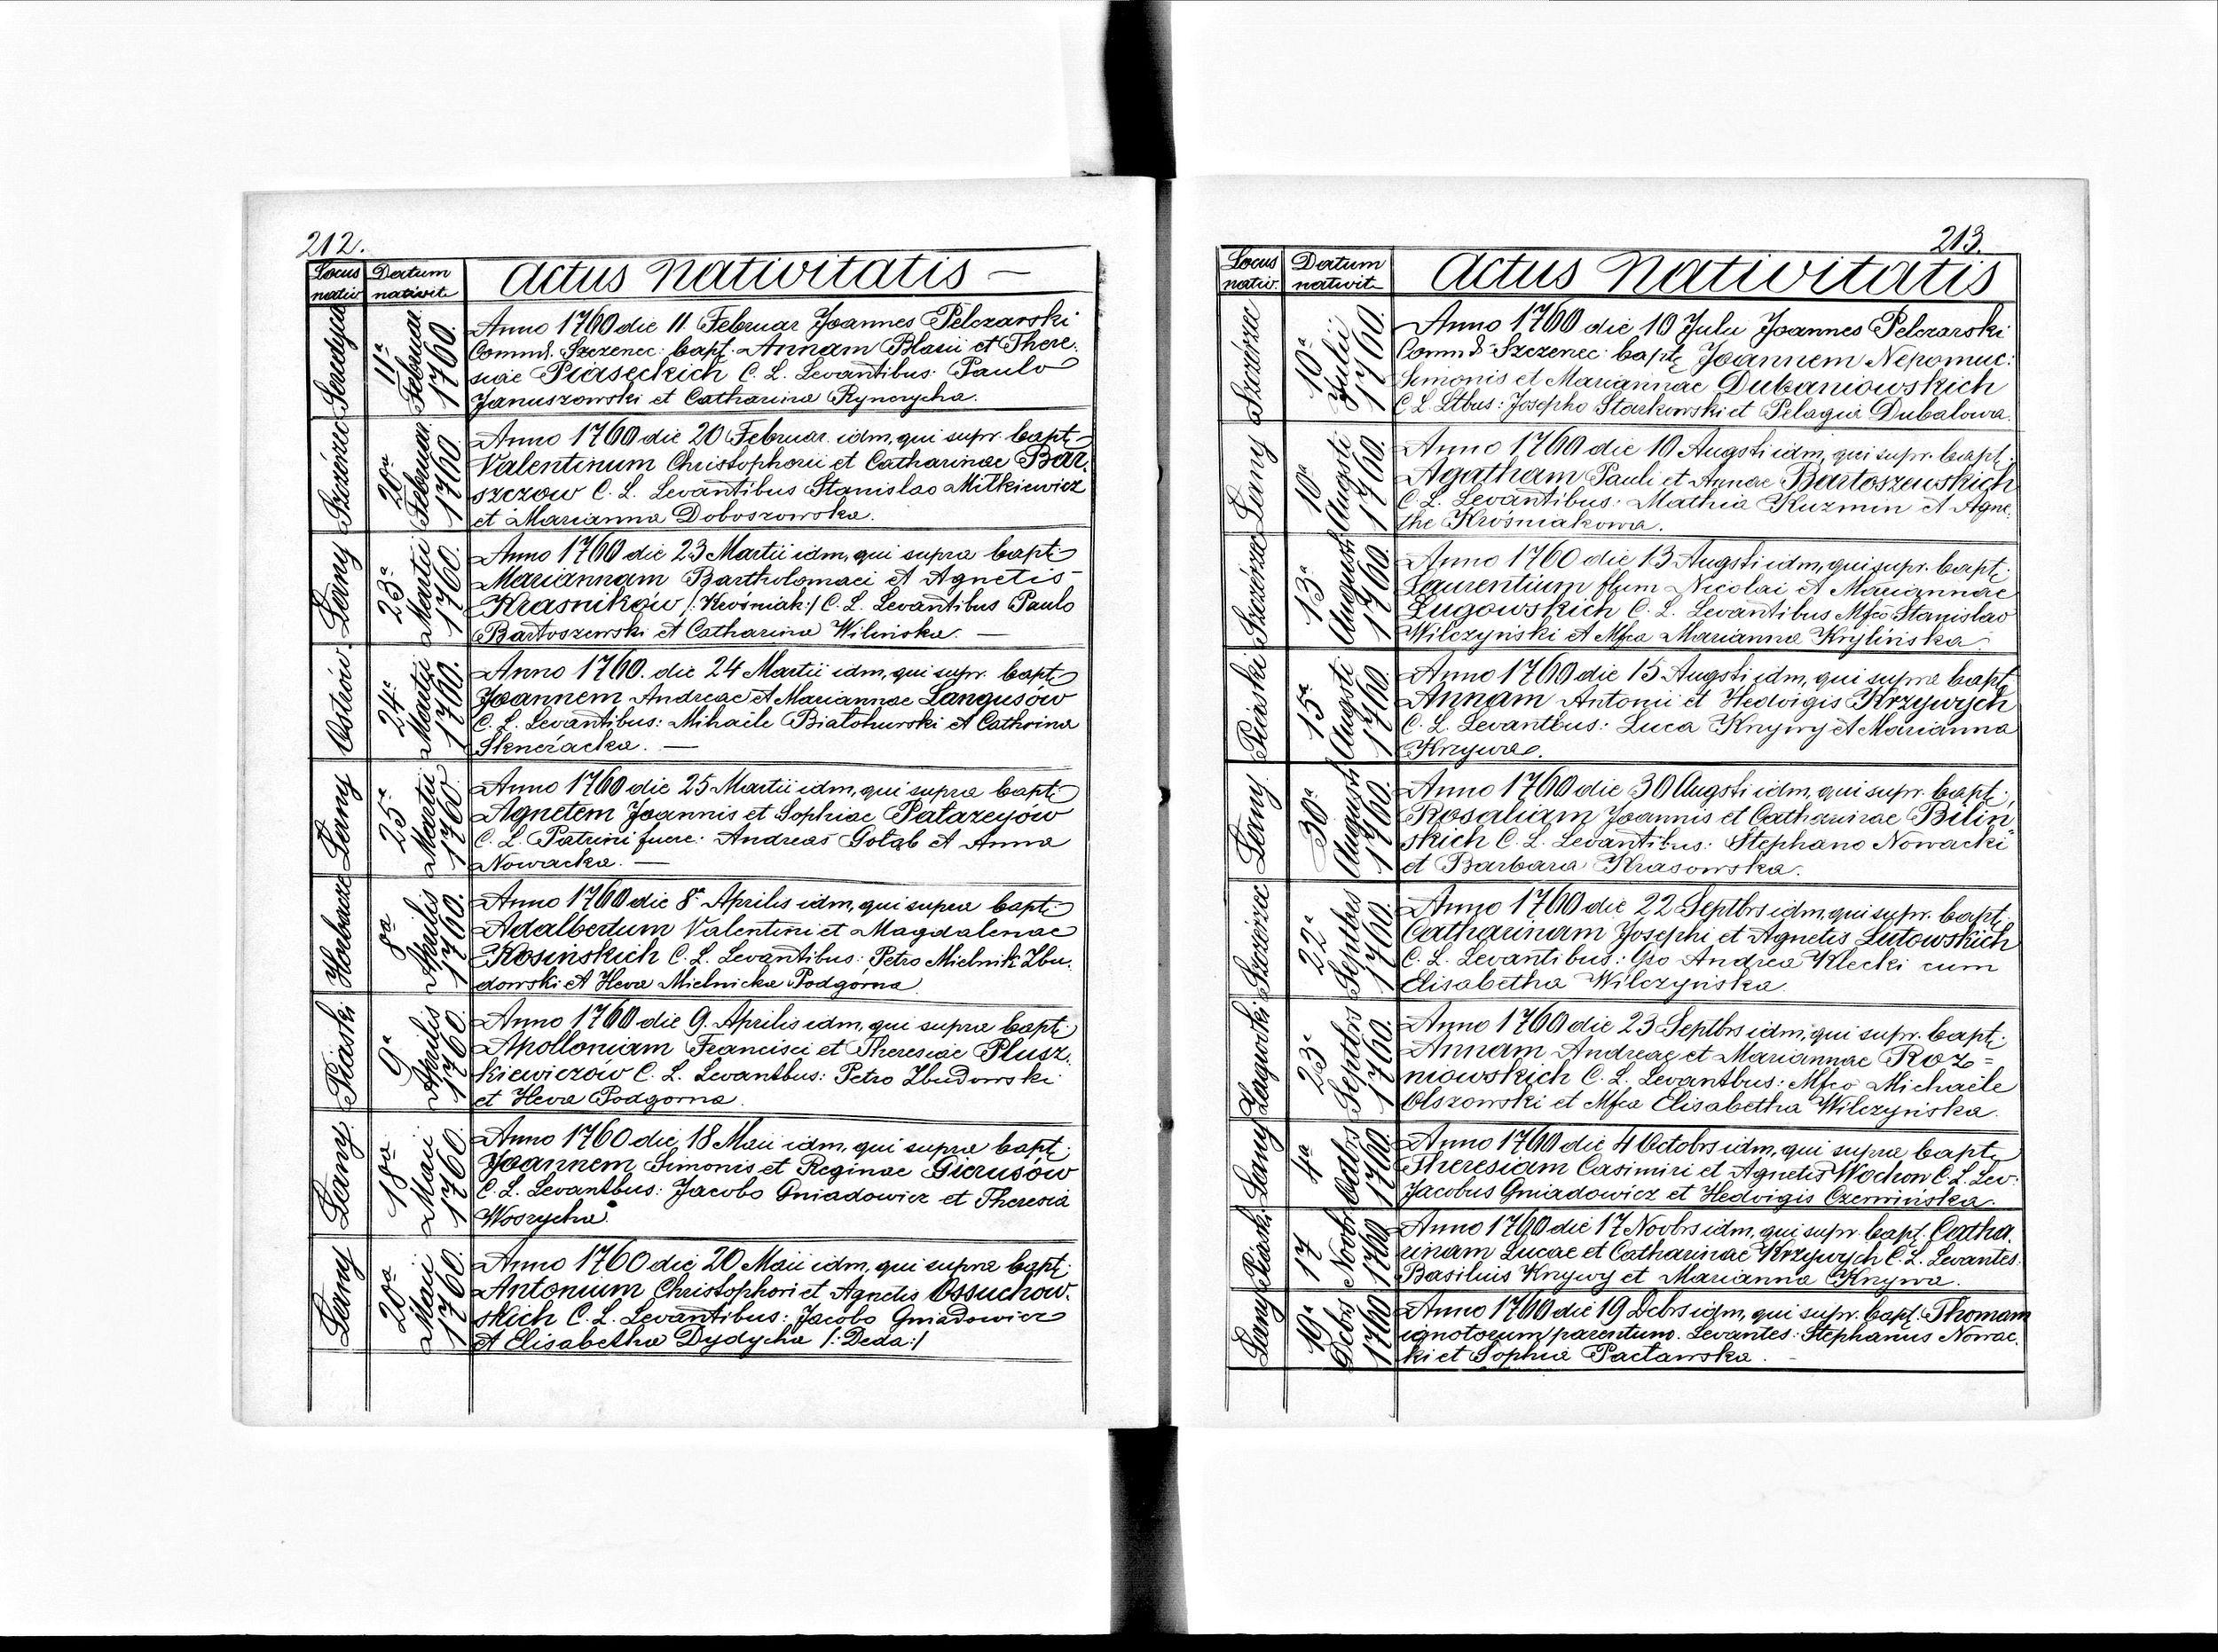 212.
Locus nativ. Datum nativit. Actus Nativitatis —
Seredyca 11ª Februar. 1760.
Anno 1760 die 11 Februar Joannes Pelczarski
Commd. Szczenec: bapt. Annam Blasii et There.
siae Piaseckich C. L. Levantibus: Paulo
Januszowski et Catharina Rynerycha.
Szczérzec 20ª Februar. 1760.
Anno 1760 die 20 Februar. idm, qui supr. bapt.
Valentinum Christophorii et Catharinae Bar.
szczow C. L. Levantibus Stanislao Mitkiewicz
et Marianna Doboszowska.
Łany 23ª Martii 1760.
Anno 1760 die 23 Martii idm, qui supra bapt:
Mariannam Bartholomaei et Agnetis
Krasników /: Krośniak:/ C. L. Levantibus Paulo
Bartoszewski et Catharina Wilinska. —
Ostrów 24ª Martii 1760.
Anno 1760. die 24 Martii idm, qui supr. bapt:
Joannem Andreae et Mariannae Langusów
C. L. Levantibus: Mihaele Białohurski et Cathrina
Sknerácka. —
Łany 25ª Martii 1760.
Anno 1760 die 25 Martii idm, qui supra bapt:
Agnetem Joannis et Sophiae Patarejow
C. L. Patrini fuere: Andreas Gołąb et Anna
Nowacka. —
Horbacze 8ª Aprilis 1760.
Anno 1760 die 8ª Aprilis idm, qui supra bapt:
Adalbertum Valentini et Magdalenae
Kosinskich C. L. Levantibus: Petro Mielnik Zbu.
dowski et Heva Mielnicka Podgórna
Piaski 9ª Aprilis 1760.
Anno 1760 die 9. Aprilis idm, qui supra bapt:
Apolloniam Francisci et Theresiae Plusz.
kiewiczow C. L. Levantbus: Petro Zbudowski
et Heva Podgorna.
Łany 18ª Maii 1760.
Anno 1760 die 18 Maii idm, qui supra bapt:
Joannem Simonis et Reginae Gierusów
C. L. Levantbus: Jacobo Gniadowicz et Theresia
Woszycha.
Łany 20ª Maii 1760.
Anno 1760 die 20 Maii idm, qui supra bapt:
Antonium Christophori et Agnetis Ossuchow.
skich C. L. Levantibus: Jacobo Gniadowicz
et Elisabetha Dydycha /: Deda:/
213.
Locus nativ. Datum nativit. Actus Nativitatis
Szczérzec 10ª Julii 1760.
Anno 1760 die 10 Julu Joannes Pelczarski
Commd Szczenec: bapt: Joannem Nepomuc:
Simonis et Mariannae Dukaniowskich
C L Ltbus: Josepho Starkowski et Pelagia Dubalowa.
Łany 10ª Augsti 1760.
Anno 1760 die 10 Augsti idm, qui supr. bapt.
Agatham Pauli et Agnae Bartoszewskich
C L. Levantibus: Mathia Kuzmin et Agne.
the Krośniakowa.
Szczérzec 13ª Augusti 1760.
Anno 1760 die 13 Augsti idm, qui supr. bapt:
Laurentium ffum Nicolai et Mariannae
Lugowskich C. L. Levantibus Mfco Stanislao
Wilczyński et Mfca Marianna Krylińska.
Piaski 15ª Augusti 1760.
Anno 1760 die 15 Augsti idm, qui supra bapt
Annam Antonii et Hedvigis Krzywych
C. L. Levantbus: Luca Krzywy et Marianna
Krzywa.
Łany 30ª Augusti 1760.
Anno 1760 die 30 Augsti idm, qui supr. bapt.
Rosaliam Joannis et Catharinae Bilin
skich C. L. Levantibus: Stephano Nowacki
et Barbara Krasowska.
Szczérzec 22ª Septbis 1760.
Anno 1760 die 22 Septbrs idm, qui supr. bapt.
Catharinam Josephi et Agnetis Lutowskich
C. L. Levantibus: Gso Andrea Klecki cum
Elisabetha Wilczyńska
Zagrodki 23ª Septbrs 1760.
Anno 1760 die 23 Septbrs idm, qui supr. bapt:
Annam Andreae et Mariannae Roz=
niowskich C. L. Levantbus: Mfco Michaéle
Olszowski et Mfca Elisabetha Wilczyńska.
Łany 4ª Octobrs 1760.
Anno 1760 die 4 Octobrs idm, qui supra bapt:
Theresiam Casimiri et Agnetis Wochow C. L. Lev:
Jacobus Gniadowicz et Hedvigis Czerwińska.
Piaski 17 Novbr 1760
Anno 1760 die 17 Novbrs idm, qui supr. bapt. Catha.
rinam Lucae et Catharinae Krzywych C. L. Levantes:
Basilius Krzywy et Marianna Krzywa.
Łany 19ª Dcbrs 1760
Anno 1760 die 19 Dcbrs idm, qui supr. bapt. Thomam
ignotorum parentum. Levantes: Stephanus Nowac.
ki et Sophia Pactawska. –